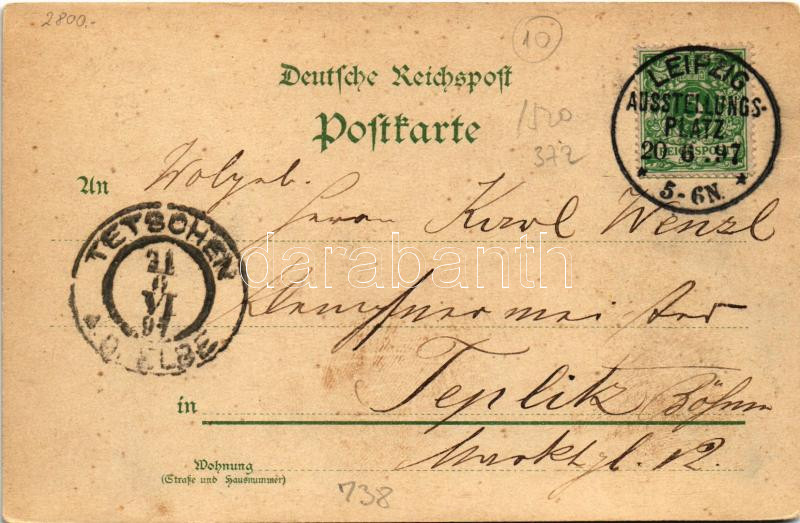 2800.-
10
Deutsche Reichspost
Postkarte
1520
372
LEIPZIG
AUSSTELLUNGS-
PLATZ.
20 6.97
* 5-6N. *
REICHSPOST
An Wolgeb.
Herrn Karl Wenzl
TETSCHEN
21
VI
97
a.d. ELBE
darabanth
Klempfnermeister
in Teplitz Böhmen
Marktgl. 12.
Wohnung
(Straße und Hausnummer)
738